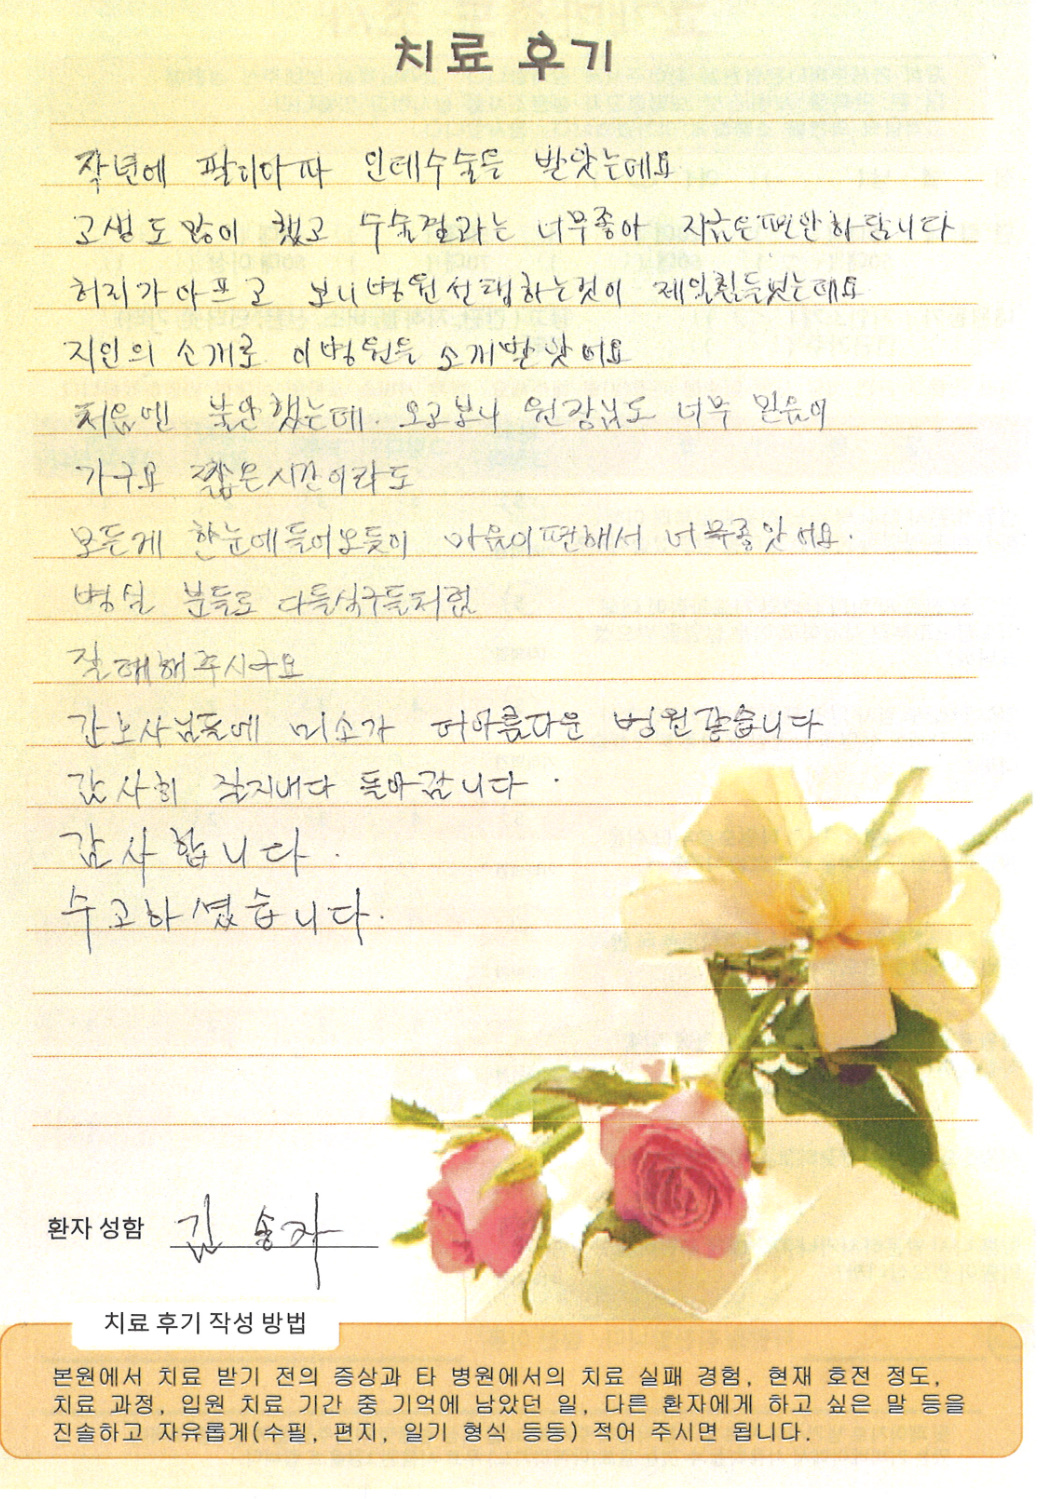 치료 후기
작년에 팔 인데수술을 받았는데요
고생도 많이 했고 수술결과는 너무좋아 지금은편안하답니다
허리가아프고 보니병원선택하는것이 제일힘들었는데요
지인의 소개로 이병원을 소개받았어요
처음엔 불안했는데. 오고보니 원장님도 너무 믿음이
가구요 짧은시간이라도
모든게 한눈에들어오듯이 마음이편해서 너무좋았어요.
병실 분들도 다들식구들처럼
잘해주시구요
간호사님들에 미소가 더아름다운 병원같습니다
감사히 잘지내다 돌아갑니다.
감사합니다.
수고하셨습니다.
환자 성함 김송자
치료 후기 작성 방법
본원에서 치료 받기 전의 증상과 타 병원에서의 치료 실패 경험, 현재 호전 정도,
치료 과정, 입원 치료 기간 중 기억에 남았던 일, 다른 환자에게 하고 싶은 말 등을
진솔하고 자유롭게(수필, 편지, 일기 형식 등등) 적어 주시면 됩니다.